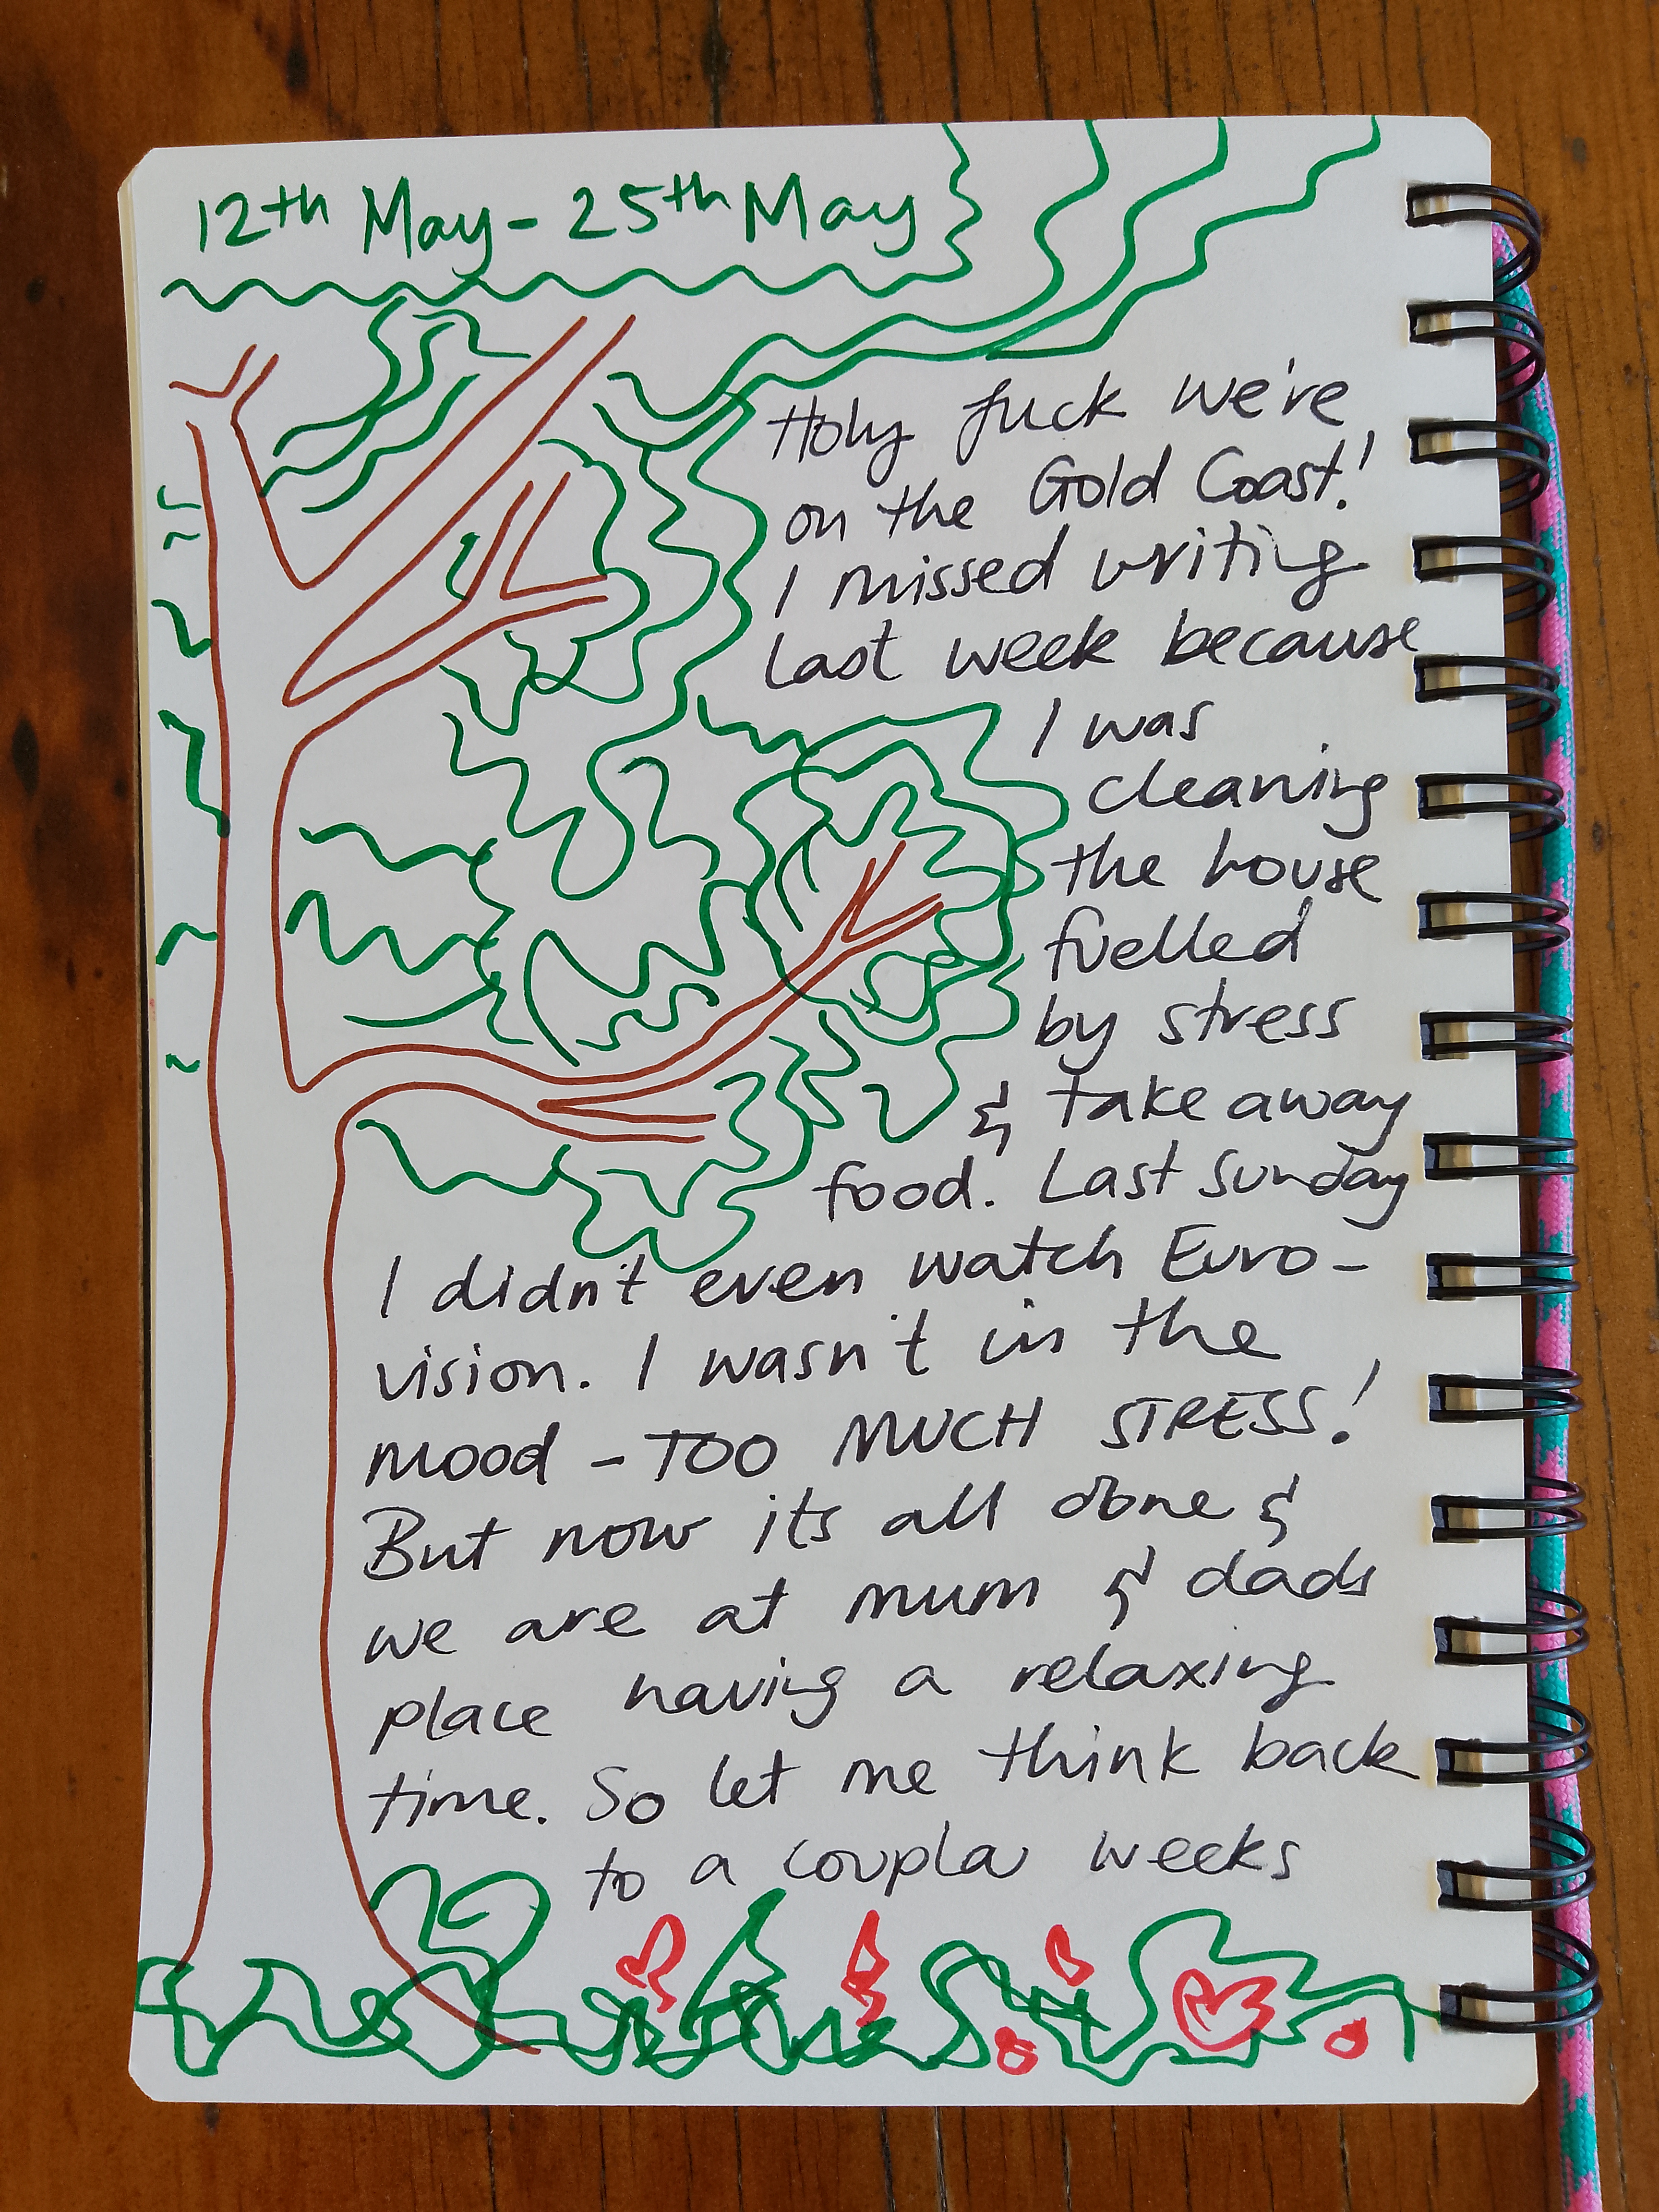 12th May - 25th May
Holy fuck we're
on the Gold Coast!
I missed writing
last week because
I was
cleaning
the house
fuelled
by stress
& take away
food. Last Sunday
I didn't even watch Euro-
vision. I wasn't in the
mood - TOO MUCH STRESS!
But now its all done &
we are at mum & dads
place having a relaxing
time. So let me think back
to a coupla weeks